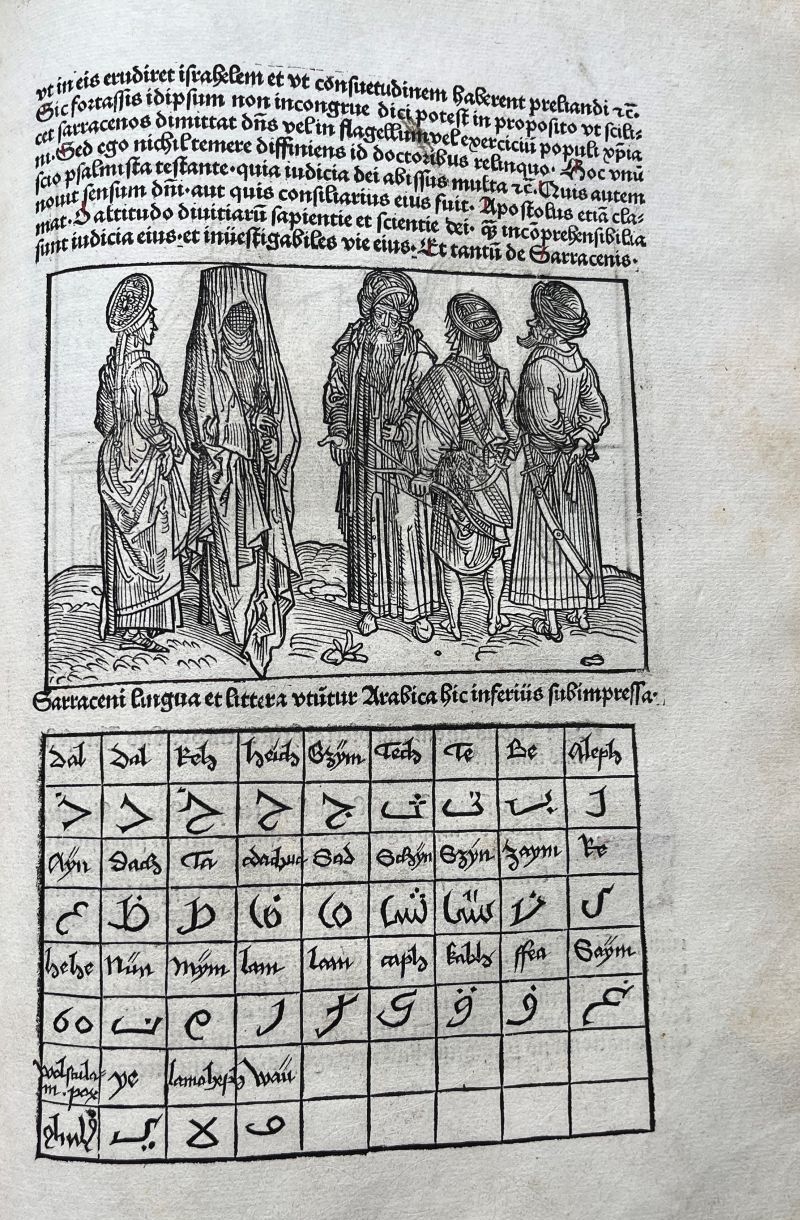 vt in eis erudiret israhelem et vt cõnsuetudinem haberent preliandi ⁊c̃.
Sic fortassis idipsum non incongrue dici potest in proposito vt scili⸗
cet sarracenos dimittat dñs vel in flagellum vel exerciciũ populi xp̃ia
ni. Sed ego nichil temere diffiniens id doctoribus relinquo. Hoc vnũ
scio psalmista testante. quia iudicia dei abissus multa ⁊c̃. Quis autem
nouit sensum dñi. aut quis consiliarius eius fuit. Apostolus etiã cla⸗
mat. O altitudo diuitiarũ sapientie et scientie dei. qz̃ incõprehensibilia
sunt iudicia eius. et inuestigabiles vie eius. Et tantũ de Sarracenis.
Sarraceni lingua et littera vtũtur Arabica hic inferius subimpressa.
Dal Dal Keh heich Gzÿm Tech Te Be Aleph
ذ د خ ح ج ث ت ب ا
Aÿn Dach Ta Sad Schÿn Szÿn Zaym Re
ع ظ ط ض ص ش س ز ر
hehe Nün Mÿm lam lam caph kabh ffea Gaÿm
ه ن م ل ك ق ف غ
ye lamoleph Waü
ي لا و